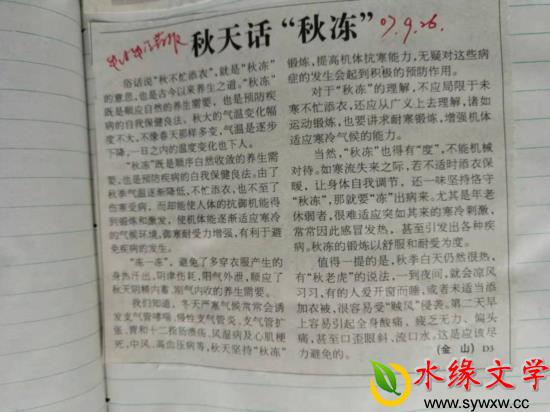 秋天话“秋冻”
07.9.26.
俗话说“秋不忙添衣”，就是“秋冻”
的意思，也是古今以来养生之道。“秋冻”
既是顺应自然的养生需要，也是预防疾
病的自我保健良法。秋天的气温变化幅
度不大，不像春天那样多变，气温是逐步
下降，一日之内的温度变化也下人。
“秋冻”既是顺序自然收敛的养生需
要，也是预防疾病的自我保健良法。由于
秋季气温逐渐降低，不忙添衣，也不至了
伤寒受病，而却能使人体的抗御机能得
到锻炼和激发，使机体能逐渐适应寒冷
的气候环境，御寒耐受力增强，有利于避
免疾病的发生。
“冻一冻”，避免了多穿衣服产生的
身热汗出，阴津伤耗，阳气外泄，顺应了
秋天阴精内蓄，阳气内收的养生需要。
我们知道，冬天严寒气候常常会诱
发支气管哮喘，慢性支气管炎，支气管扩
张，胃和十二指肠溃疡，风湿病及心肌梗
死，中风，高血压病等，秋天坚持“秋冻”
锻炼，提高机体抗寒能力，无疑对这些病
症的发生会起到积极的预防作用。
对于“秋冻”的理解，不应局限于未
寒不忙添衣，还应从广义上去理解，诸如
运动锻炼，也要讲求耐寒锻炼，增强机体
适应寒冷气候的能力。
当然，“秋冻”也得有“度”，不能机械
对待。如寒流失来之际，若不适时添衣保
暖，让身体自我调节，还一味坚持恪守
“秋冻”，那就要“冻”出病来。尤其是年老
休弱者，很难适应突如其来的寒冷刺激，
常常因此感冒发热，甚至引发出各种疾
病。秋冻的锻炼以舒服和耐受为度。
值得一提的是，秋季白天仍然很热，
有“秋老虎”的说法，一到夜间，就会凉风
习习，有的人爱开窗而睡，或者未适当添
加衣被，很容易受“贼风”侵袭。第二天早
上容易引起全身酸痛，疲乏无力、偏头
痛，甚至口歪眼斜，流口水。这是应该尽
力避免的。
（金山）D3
水缘文学
www.sywxw.cc